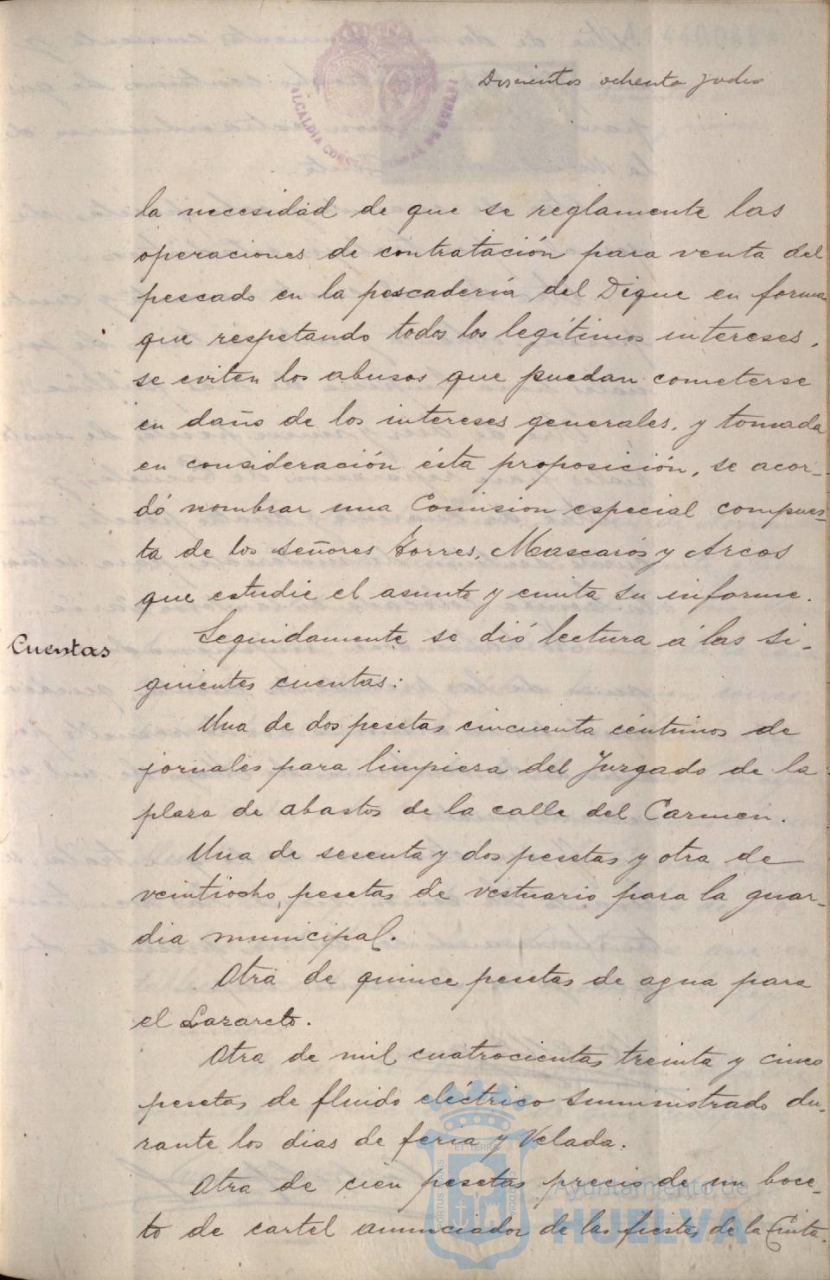 ALCALDIA CONSTITUCIONAL DE HUELVA
Doscientos ochenta y ocho
la necesidad de que se reglamente las
operaciones de contratación para venta del
pescado en la pescadería del Dique en forma
que respetando todos los legítimos intereses,
se eviten los abusos que puedan cometerse
en daño de los intereses generales, y tomada
en consideración ésta proposición, se acor-
dó nombrar una Comision especial compues-
ta de los señores Torres, Mascarós y Arcos
que estudie el asunto y emita su informe.
Cuentas
Seguidamente se dió lectura á las si-
guientes cuentas:
Una de dos pesetas cincuenta céntimos de
jornales para limpiesa del Juzgado de la
plaza de abastos de la calle del Carmen.
Una de sesenta y dos pesetas y otra de
veintiocho pesetas de vestuario para la guar-
dia municipal.
Otra de quince pesetas de agua para
el Lazareto.
Otra de mil cuatrocientas treinta y cinco
pesetas de fluido eléctrico suministrado du-
rante los dias de feria y Velada.
Otra de cien pesetas precio de un boce-
to de cartel anunciador de las fiestas de la Cinta.
Ayuntamiento de
HUELVA